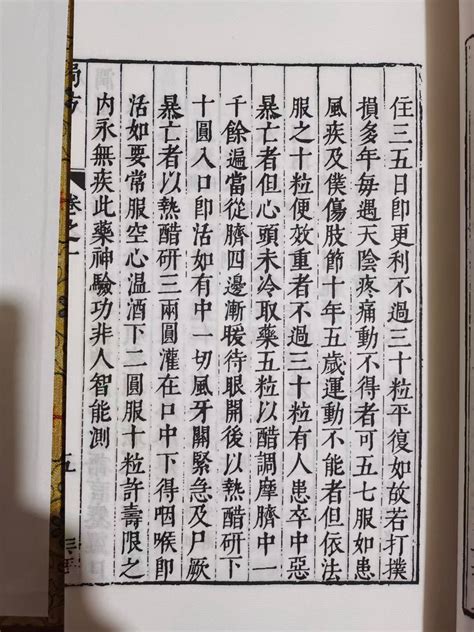 住三五日即更利不過三十粒平復如故若打撲
損多年每遇天陰疼痛動不得者可五七服如患
風疾及僕傷肢節十年五歲運動不能者但依法
服之十粒便效重者不過三十粒有人患卒中惡
暴亡者但心頭未冷取藥五粒以醋調摩臍中一
千餘遍當從臍四邊漸暖待眼開後以熱醋研下
十圓入口即活如有中一切風牙關緊急及尸厥
暴亡者以熱醋研三兩圓灌在口中下得咽喉即
活如要常服空心溫酒下二圓服十粒許壽限之
內永無疾此藥神驗功非人智能測
局方
卷之一
五